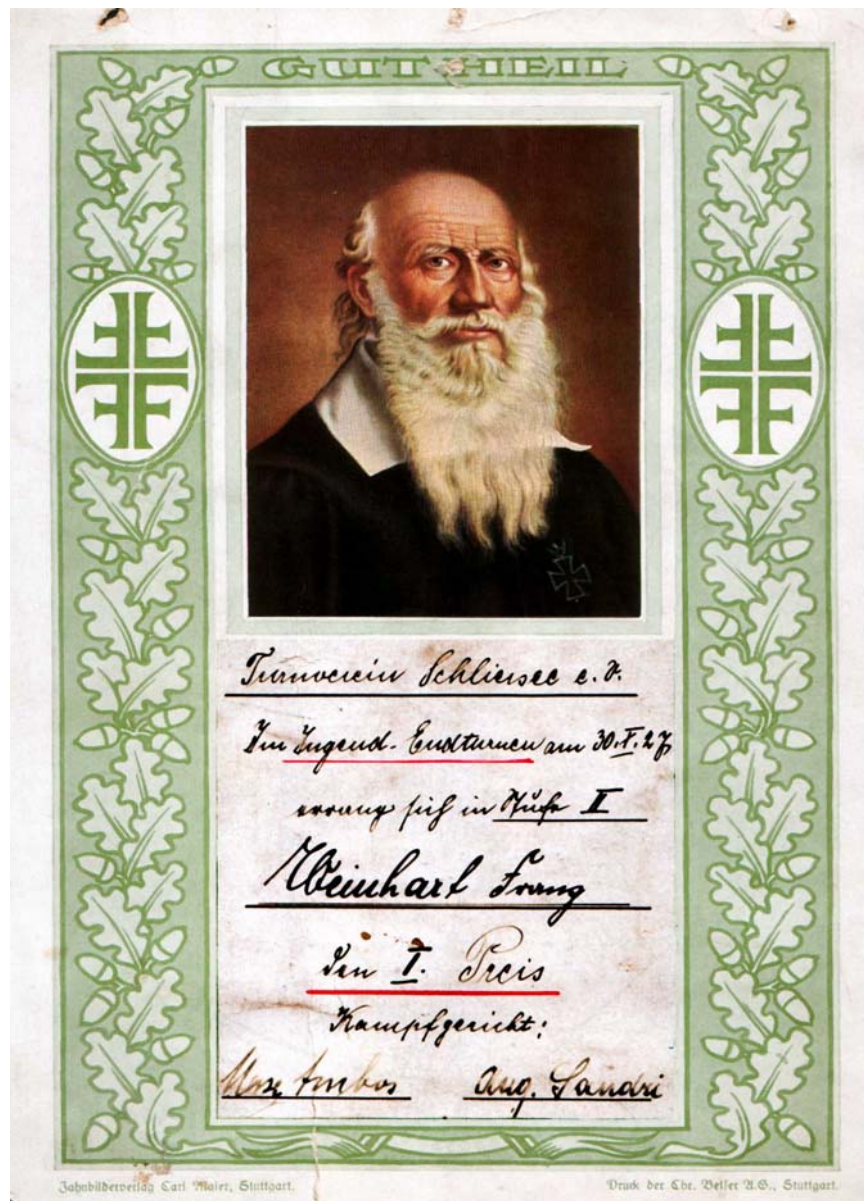 GUT HEIL
Turnverein Schliersee e. V.
Im Jugend-Endturnen am 30.X.27
errang sich in Stufe II
Weinhart Franz
den I. Preis
Kampfgericht:
Max Ambos Aug. Sandri
Jahnbilderverlag Carl Maier, Stuttgart. Druck der Chr. Belser A.G., Stuttgart.